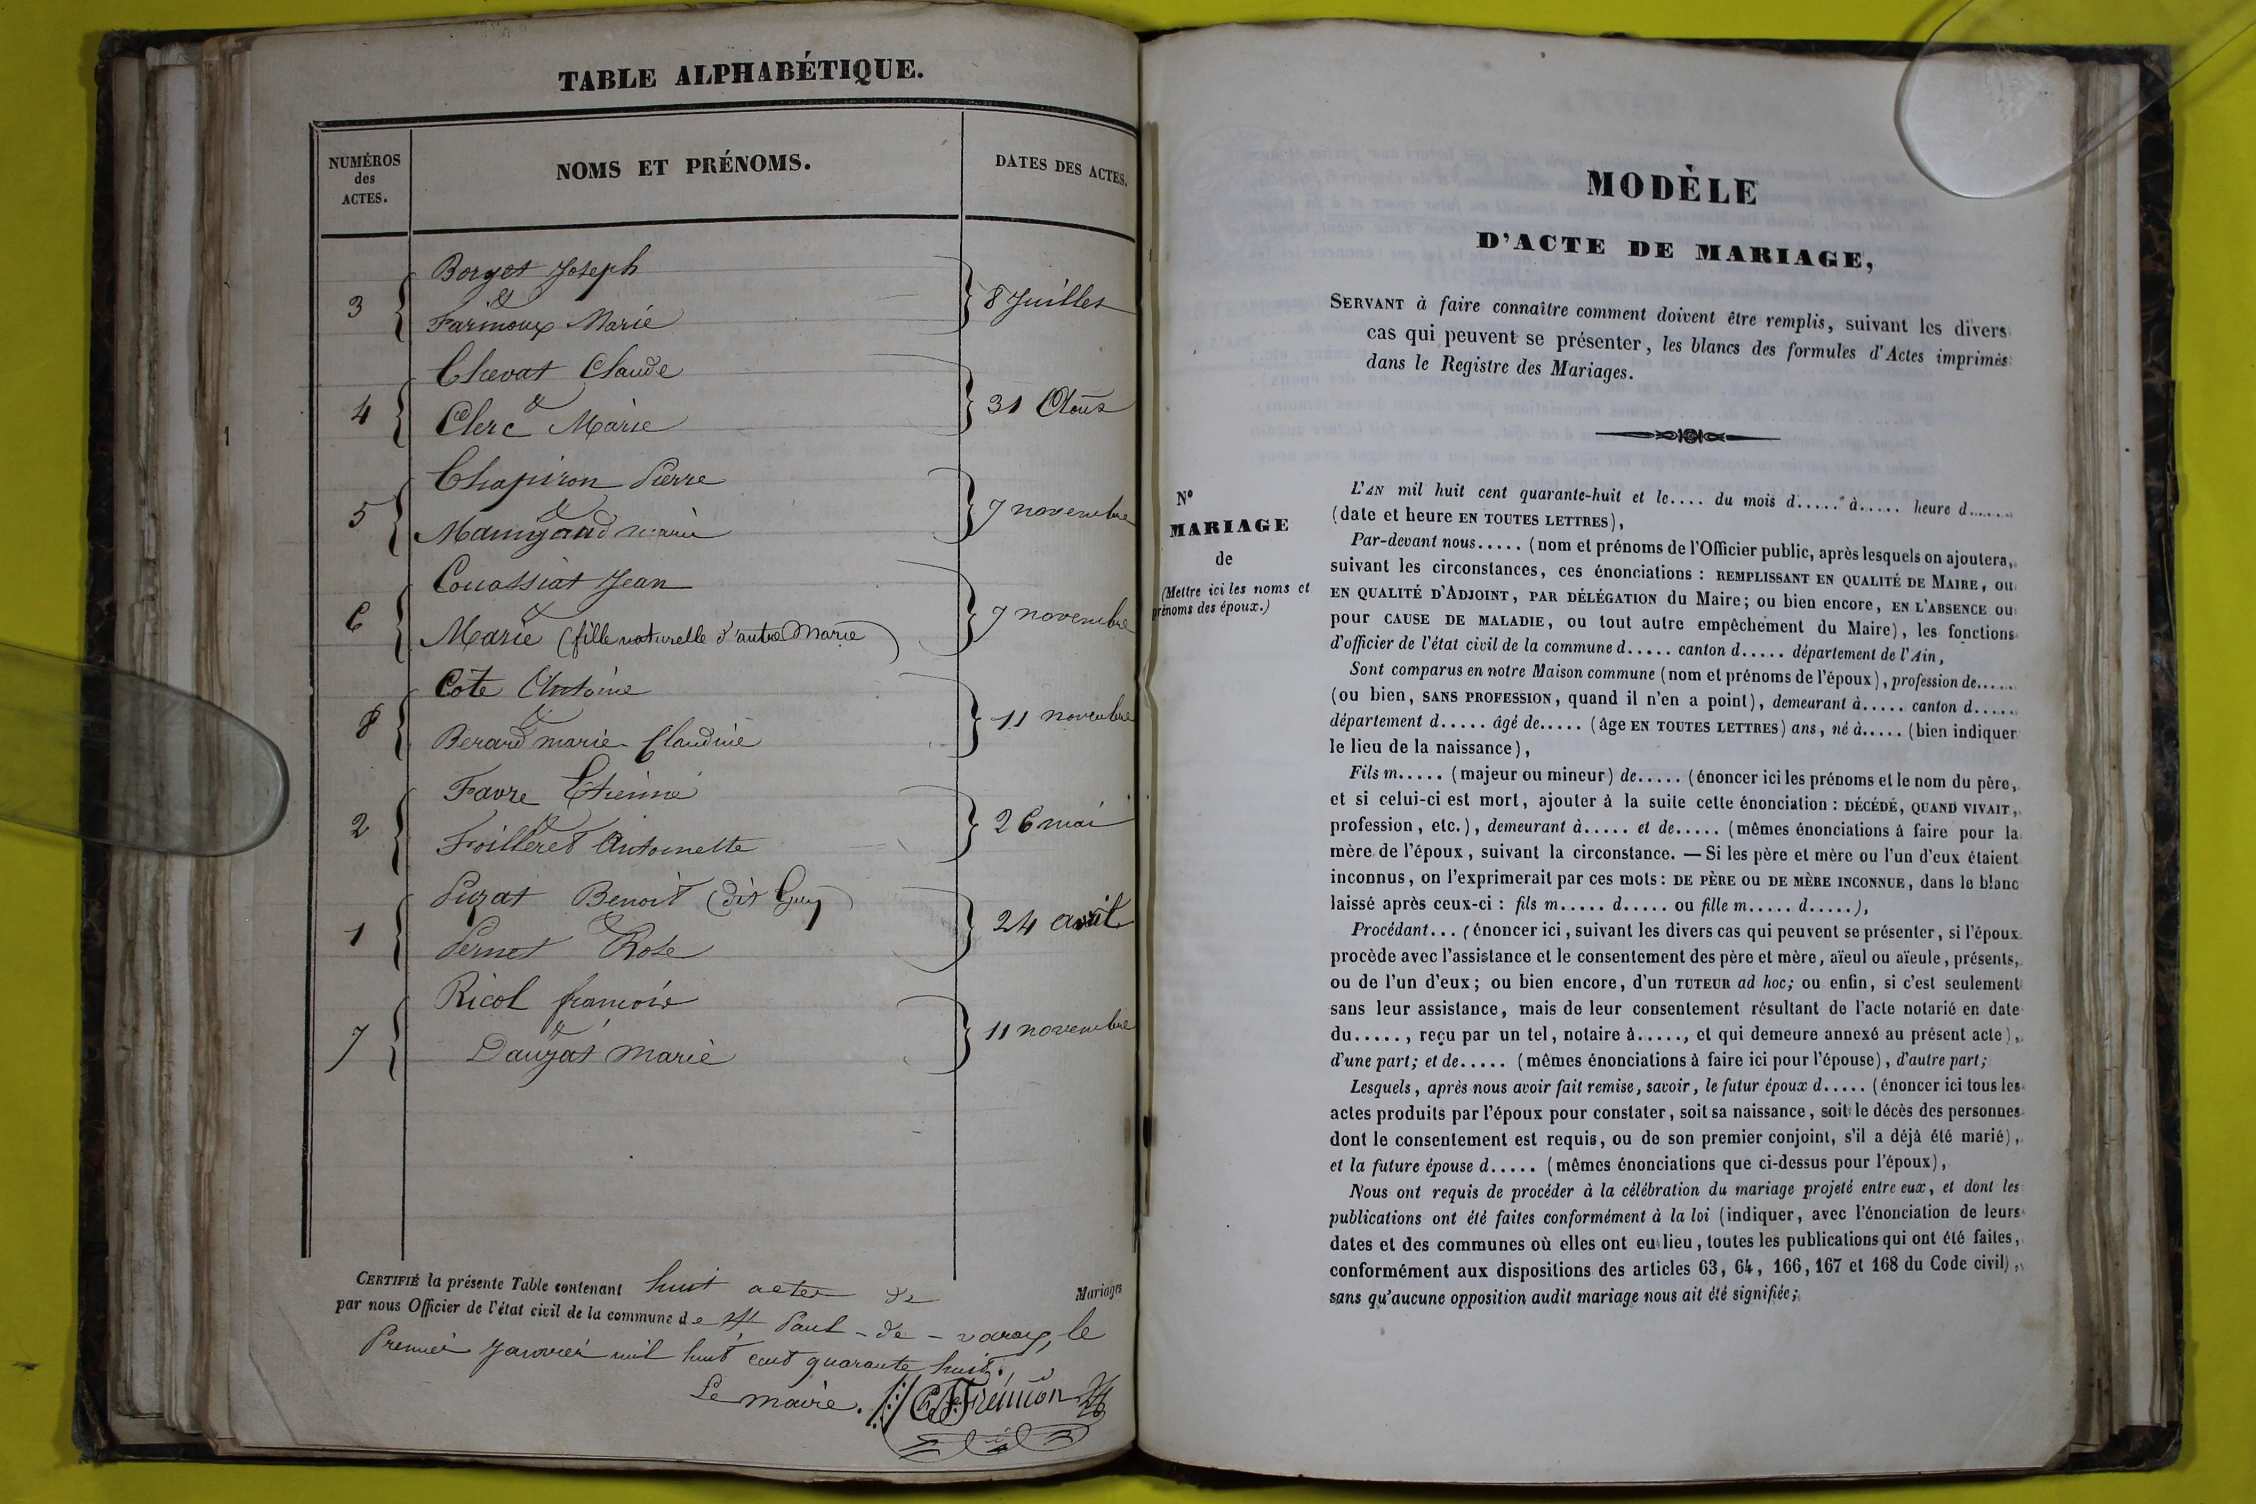 TABLE ALPHABÉTIQUE.
NUMÉROS
des
ACTES.
NOMS ET PRÉNOMS.
DATES DES ACTES.
Borget Joseph
3 & 8 Juillet
Farinoux Marie
Chevat Claude
4 & 31 Août
Clerc Marie
Chapiron Pierre
5 & 7 novembre
marie
Couassiat Jean
6 & 7 novembre
Marie (fille naturelle d'autre Marie
Côte Antoine
8 & 11 novembre
Berard marie Claudine
Favre Etienne
2 & 26 mai
Foilleret Antoinette
Benoit (dit Guy)
1 & 24 avril
Pernet Rose
Ricol françois
7 & 11 novembre
Dauzat marie
CERTIFIÉ la présente Table contenant huit actes de Mariages
par nous Officier de l'état civil de la commune de St Paul-de-varax, le
Premier Janvier mil huit cent quarante huit.
Le maire.
MODÈLE
D'ACTE DE MARIAGE,
SERVANT à faire connaître comment doivent être remplis, suivant les divers
cas qui peuvent se présenter, les blancs des formules d'Actes imprimés
dans le Registre des Mariages.
N°
MARIAGE
de
(Mettre ici les noms et
prénoms des époux.)
L'AN mil huit cent quarante-huit et le.... du mois d..... à..... heure d......
(date et heure EN TOUTES LETTRES),
Par-devant nous..... (nom et prénoms de l'Officier public, après lesquels on ajoutera,
suivant les circonstances, ces énonciations : REMPLISSANT EN QUALITÉ DE MAIRE, ou
EN QUALITÉ D'ADJOINT, PAR DÉLÉGATION du Maire; ou bien encore, EN L'ABSENCE ou
pour CAUSE DE MALADIE, ou tout autre empêchement du Maire), les fonctions
d'officier de l'état civil de la commune d..... canton d..... département de l'Ain,
Sont comparus en notre Maison commune (nom et prénoms de l'époux), profession de.....
(ou bien, SANS PROFESSION, quand il n'en a point), demeurant à..... canton d.....
département d..... âgé de..... (âge EN TOUTES LETTRES) ans, né à..... (bien indiquer
le lieu de la naissance),
Fils m..... (majeur ou mineur) de..... (énoncer ici les prénoms et le nom du père,
et si celui-ci est mort, ajouter à la suite cette énonciation : DÉCÉDÉ, QUAND VIVAIT,
profession, etc.), demeurant à..... et de..... (mêmes énonciations à faire pour la
mère de l'époux, suivant la circonstance. — Si les père et mère ou l'un d'eux étaient
inconnus, on l'exprimerait par ces mots: DE PÈRE ou DE MÈRE INCONNUE, dans le blanc
laissé après ceux-ci : fils m..... d..... ou fille m..... d.....),
Procédant... (énoncer ici, suivant les divers cas qui peuvent se présenter, si l'époux
procède avec l'assistance et le consentement des père et mère, aïeul ou aïeule, présents,
ou de l'un d'eux; ou bien encore, d'un TUTEUR ad hoc; ou enfin, si c'est seulement
sans leur assistance, mais de leur consentement résultant de l'acte notarié en date
du....., reçu par un tel, notaire à....., et qui demeure annexé au présent acte),
d'une part; et de..... (mêmes énonciations à faire ici pour l'épouse), d'autre part;
Lesquels, après nous avoir fait remise, savoir, le futur époux d..... (énoncer ici tous les
actes produits par l'époux pour constater, soit sa naissance, soit le décès des personnes
dont le consentement est requis, ou de son premier conjoint, s'il a déjà été marié),
et la future épouse d..... (mêmes énonciations que ci-dessus pour l'époux),
Nous ont requis de procéder à la célébration du mariage projeté entre eux, et dont les
publications ont été faites conformément à la loi (indiquer, avec l'énonciation de leurs
dates et des communes où elles ont eu lieu, toutes les publications qui ont été faites,
conformément aux dispositions des articles 63, 64, 166, 167 et 168 du Code civil),
sans qu'aucune opposition audit mariage nous ait été signifiée;